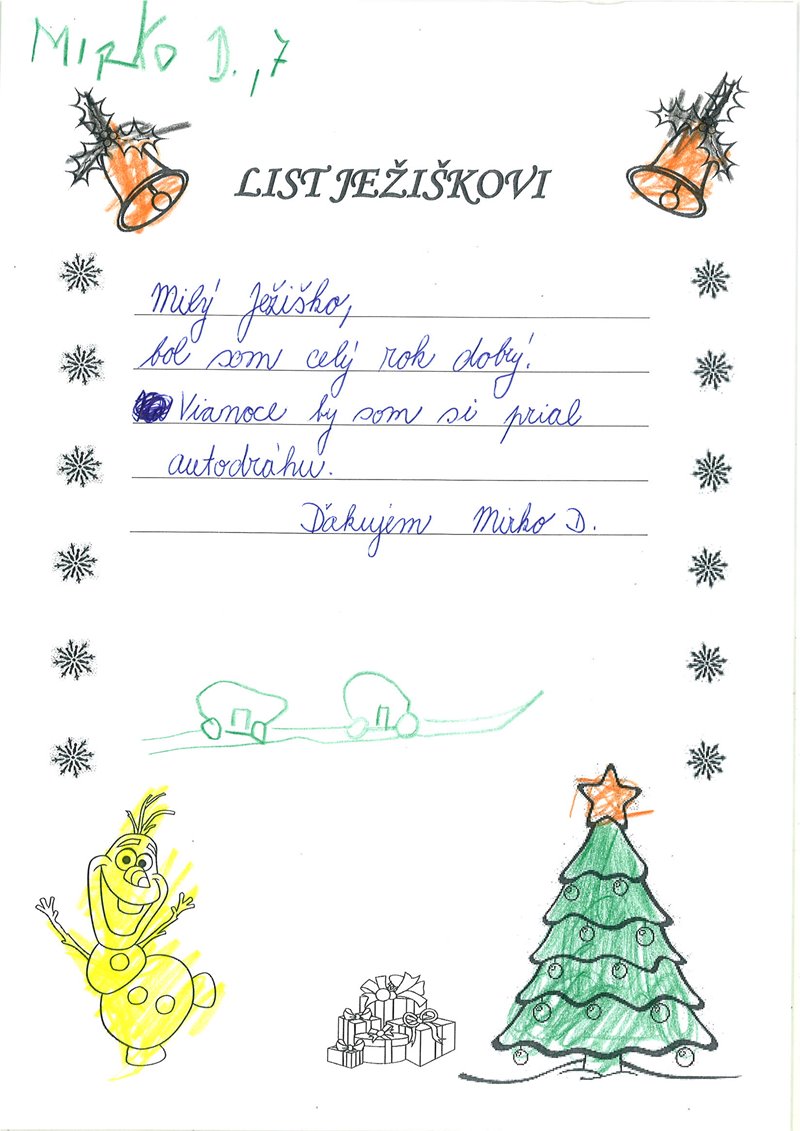 Mirko D., 7
LIST JEŽIŠKOVI
Milý Ježiško,
bol som celý rok dobrý.
Vianoce by som si prial
autodráhu.
Ďakujem Mirko D.